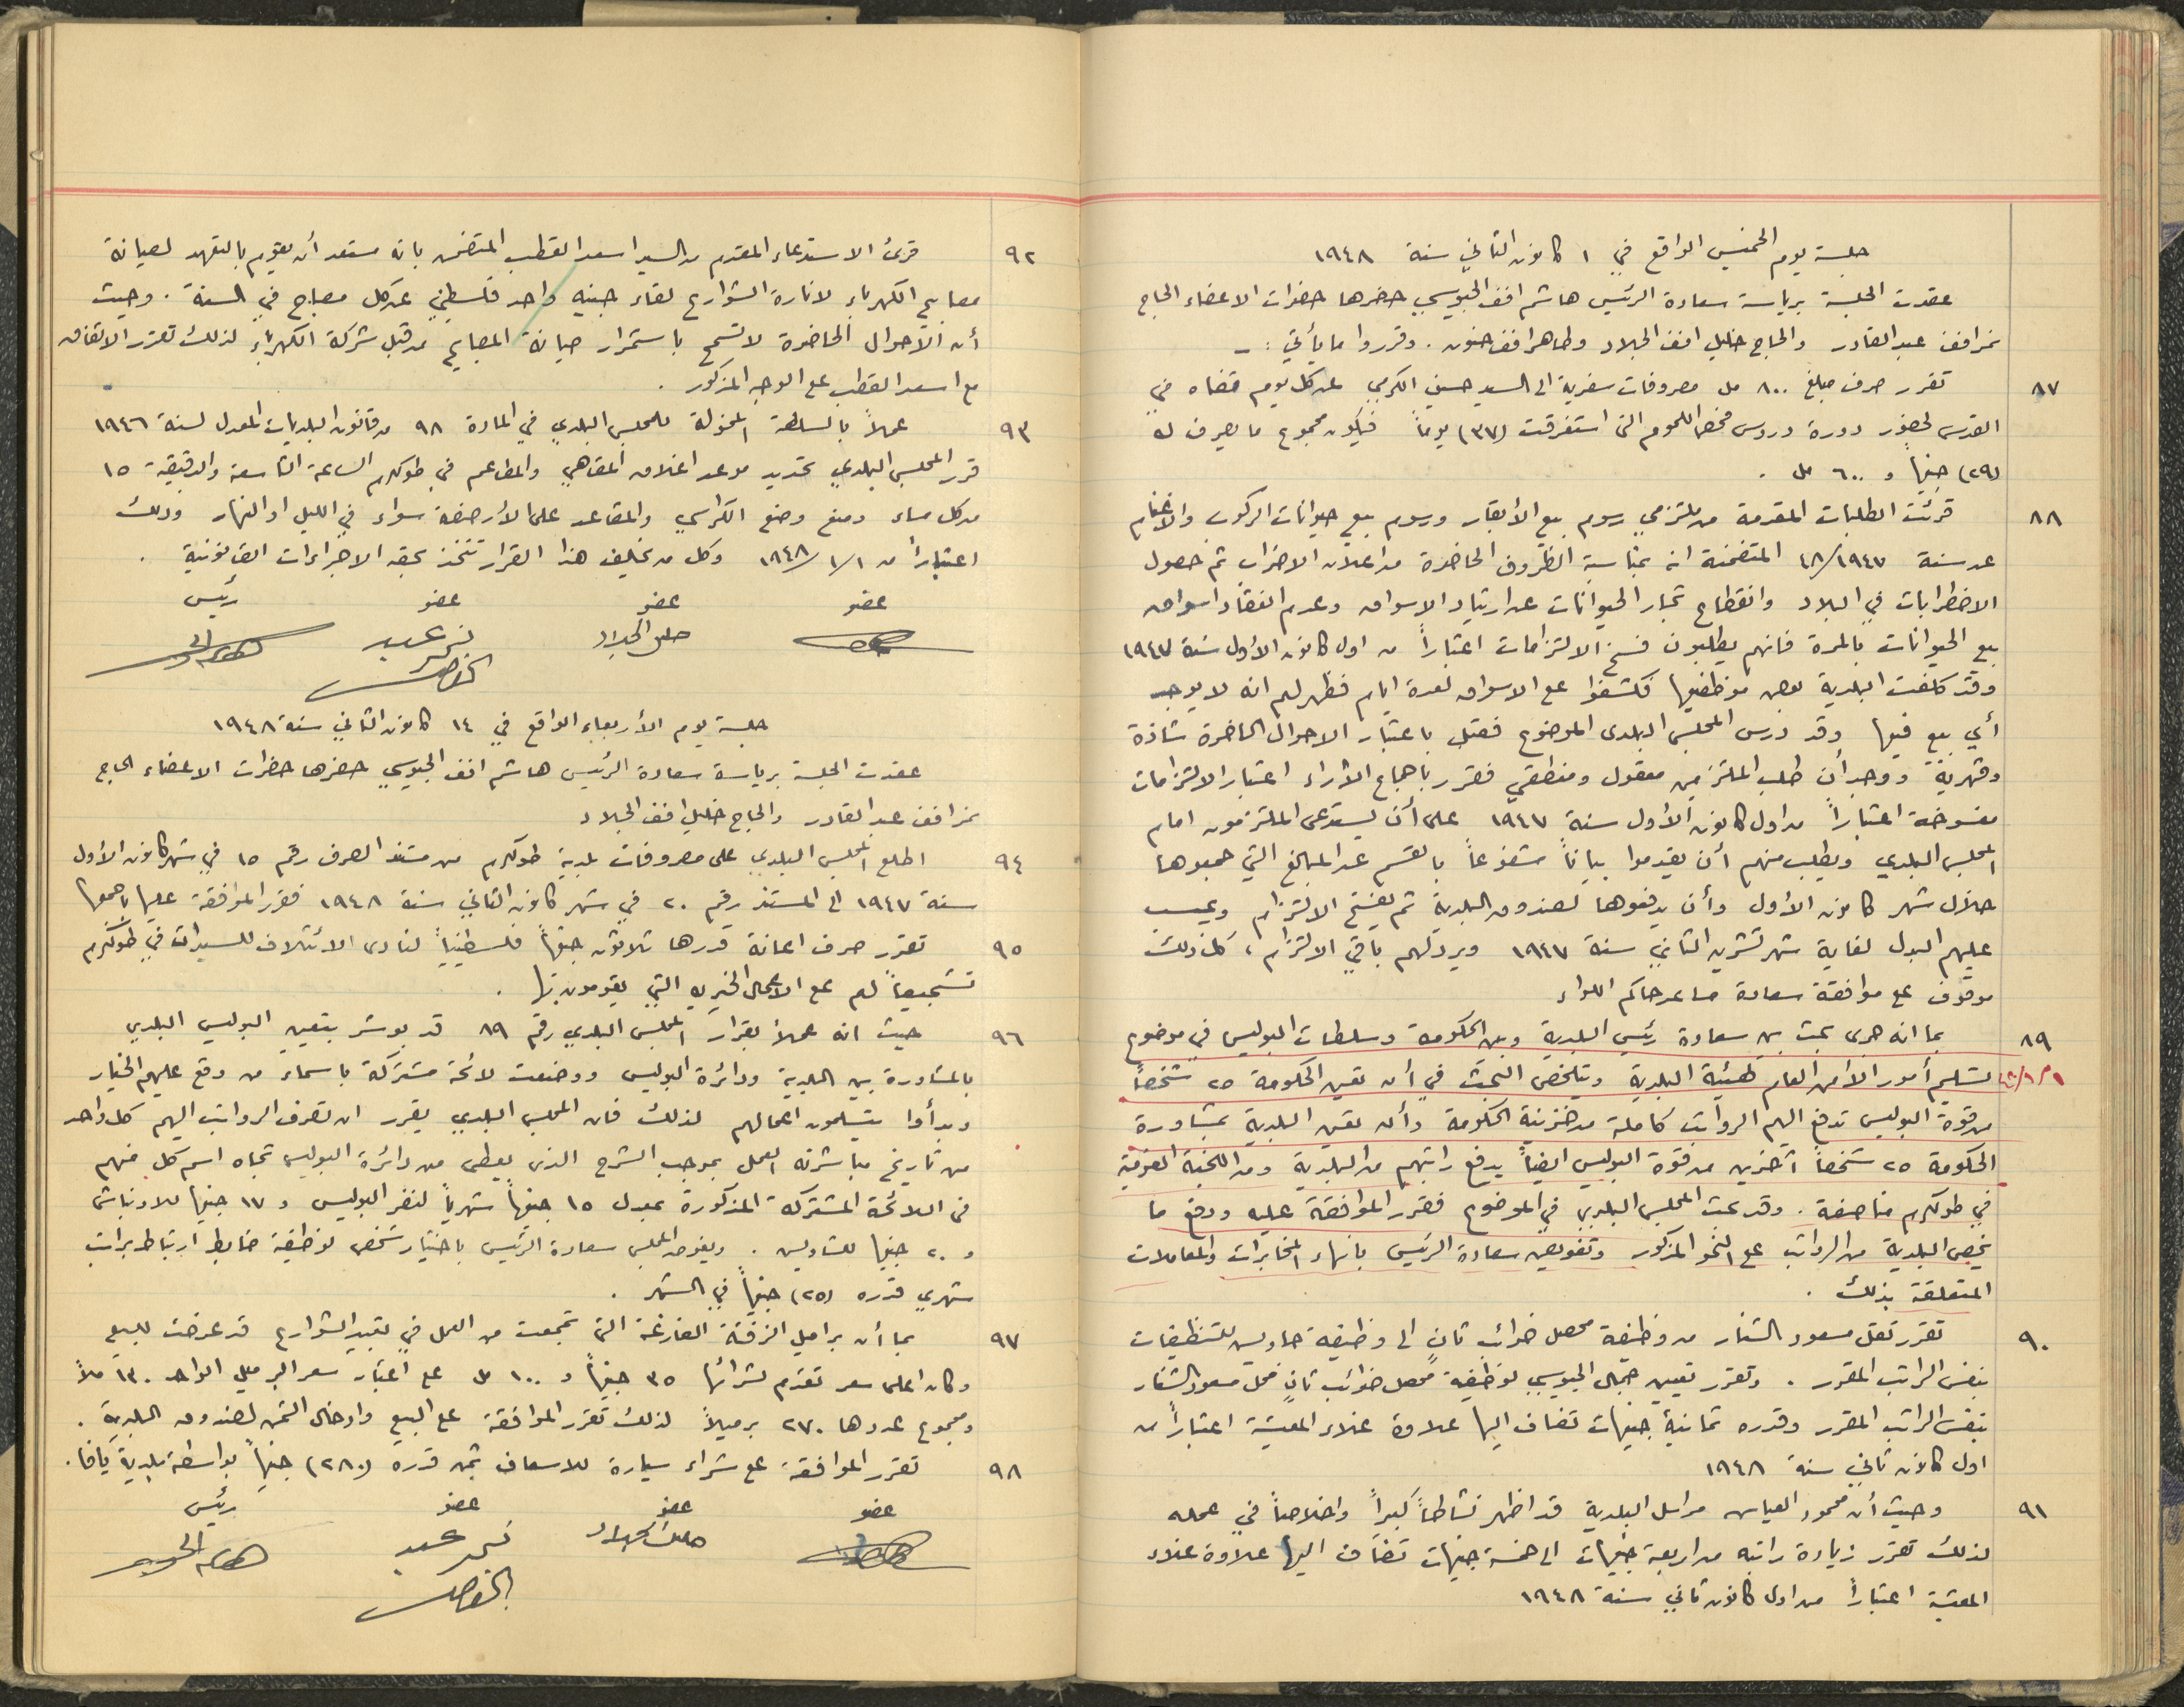 جلسة يوم الخميس الواقع في ١ كانون الثاني سنة ١٩٤٨
عقدت الجلسة برياسة سعادة الرئيس هاشم افندي الجيوسي حضرها حضرات الاعضاء الحاج
نمر افندي عبد القادر والحاج خليل افندي الجلاد وطاهر افندي حنون . وقرروا ما يأتي :-
٨٧ تقرر صرف مبلغ ٨٠٠ مل مصروفات سفرية الى السيد حسين الكرمي عن كل يوم قضاه في
القدس لحضور دورة دروس فحص اللحوم التي استغرقت (٣٧) يوماً فيكون مجموع ما يصرف له
(٢٩) جنيهاً و ٦٠٠ مل .
٨٨ قرئت الطلبات المقدمة من ملتزمي رسوم بيع الأبقار ورسوم بيع حيوانات الركوب والاغنام
عن سنة ١٩٤٧/٤٨ المتضمنة انه بمناسبة الظروف الحاضرة من اعلان الاضراب ثم حصول
الاضطرابات في البلاد وانقطاع تجار الحيوانات عن ارتياد الاسواق وعدم انعقاد اسواق
بيع الحيوانات بالمرة فانهم يطلبون فسخ الالتزامات اعتباراً من اول كانون الأول سنة ١٩٤٧
وقد كلفت البلدية بعض موظفيها فكشفوا على الاسواق لعدة ايام فظهر لهم انه لا يوجد
أي بيع فيها وقد درس المجلس البلدي الموضوع فقبل باعتبار الاحوال الحاضرة شاذة
وقهرية ووجد أن طلب الملتزمين معقول ومنطقي فقرر باجماع الأراء اعتبار الالتزامات
مفسوخة اعتباراً من اول كانون الأول سنة ١٩٤٧ على أن يستدعى الملتزمون امام
المجلس البلدي ويطلب منهم أن يقدموا بياناً مشفوعاً بالقسم عن المبالغ التي جمعوها
خلال شهر كانون الأول وأن يدفعوها لصندوق البلدية ثم يفسخ الالتزام ويحسب
عليهم البدل لغاية شهر تشرين الثاني سنة ١٩٤٧ ويرد لهم باقي الالتزام ، كل ذلك
موقوف على موافقة سعادة مساعد حاكم اللواء
٨٩ بما انه جرى بحث بين سعادة رئيس البلدية وبين الحكومة وسلطات البوليس في موضوع
٤٨/١/١ تسليم أمور الأمن العام لهيئة البلدية ويتلخص البحث في أن تعين الحكومة ٢٥ شخصاً
من قوة البوليس تدفع اليهم الرواتب كاملة من خزينة الحكومة وأن تعين البلدية بمشاورة
الحكومة ٢٥ شخصاً آخرين من قوة البوليس ايضاً يدفع راتبهم من البلدية ومن اللجنة القومية
في طولكرم مناصفة . وقد بحث المجلس البلدي في الموضوع فقرر الموافقة عليه ودفع ما
يخص البلدية من الرواتب على النحو المذكور وتفويض سعادة الرئيس بانهاء المخابرات والمعاملات
المتعلقة بذلك .
٩٠ تقرر نقل مسعود الشنار من وظيفة محصل ضرائب ثان الى وظيفة جاويش للتنظيفات
بنفس الراتب المقرر . وتقرر تعيين جمال الجيوسي لوظيفة محصل ضرائب ثان محل مسعود الشنار
بنفس الراتب المقرر وقدره ثمانية جنيهات تضاف اليها علاوة غلاء المعيشة اعتباراً من
اول كانون ثاني سنة ١٩٤٨
٩١ وحيث أن محمود العباس مراسل البلدية قد اظهر نشاطاً كبيراً واخلاصاً في عمله
لذلك تقرر زيادة راتبه من اربعة جنيهات الى خمسة جنيهات تضاف اليها علاوة غلاء
المعيشة اعتباراً من اول كانون ثاني سنة ١٩٤٨
٩٢ قرئ الاستدعاء المقدم من السيد اسعد القطب المتضمن بانه مستعد أن يقوم بالتعهد لصيانة
مصابيح الكهرباء لانارة الشوارع لقاء جنيه واحد فلسطيني عن كل مصباح في السنة . وحيث
أن الأحوال الحاضرة لا تسمح باستمرار صيانة المصابيح من قبل شركة الكهرباء لذلك تقرر الاتفاق
مع اسعد القطب على الوجه المذكور .
٩٣ عملاً بالسلطة المخولة للمجلس البلدي في المادة ٩٨ من قانون البلديات المعدل لسنة ١٩٤٦
قرر المجلس البلدي تحديد موعد اغلاق المقاهي والمطاعم في طولكرم الساعة التاسعة والدقيقة ١٥
من كل مساء ومنع وضع الكراسي والمقاعد على الأرصفة سواء في الليل او النهار وذلك
اعتباراً من ١/١/١٩٤٨ وكل من يخالف هذا القرار تتخذ بحقه الاجراءات القانونية .
عضو عضو عضو رئيس
جلسة يوم الأربعاء الواقع في ١٤ كانون الثاني سنة ١٩٤٨
عقدت الجلسة برياسة سعادة الرئيس هاشم افندي الجيوسي حضرها حضرات الاعضاء الحاج
نمر افندي عبد القادر والحاج خليل افندي الجلاد
٩٤ اطلع المجلس البلدي على مصروفات بلدية طولكرم من مستند الصرف رقم ١٥ في شهر كانون الأول
سنة ١٩٤٧ الى المستند رقم ٢٠ في شهر كانون الثاني سنة ١٩٤٨ فقرر الموافقة عليها باجمعها
٩٥ تقرر صرف اعانة قدرها ثلاثون جنيهاً فلسطينياً لنادى الائتلاف للسيدات في طولكرم
تشجيعاً لهم على الاعمال الخيرية التي يقومون بها .
٩٦ حيث انه عملاً بقرار المجلس البلدي رقم ٨٩ قد بوشر بتعيين البوليس البلدي
بالمشاورة بين البلدية ودائرة البوليس ووضعت لائحة مشتركة باسماء من وقع عليهم الخيار
وبدأوا يتسلمون اعمالهم لذلك فان المجلس البلدي يقرر ان تصرف الرواتب اليهم كل واحد
من تاريخ مباشرته العمل بموجب الشرح الذي يعطى من دائرة البوليس تجاه اسم كل منهم
في اللائحة المشتركة المذكورة بمعدل ١٥ جنيهاً شهرياً لنفر البوليس و ١٧ جنيها للاونباشي
و ٢٠ جنيها للشاويش . ويفوض المجلس سعادة الرئيس باختيار شخص لوظيفة ضابط ارتباط براتب
شهري قدره (٢٥) جنيهاً في الشهر .
٩٧ بما أن براميل الزفتة الفارغة التي تجمعت من العمل في تعبيد الشوارع قد عرضت للبيع
وكان اعلى سعر تقدم لشرائها ٣٥ جنيهاً و ١٠٠ مل على اعتبار سعر البرميل الواحد ١٣٠ ملاً
ومجموع عددها ٢٧٠ برميلاً لذلك تقرر الموافقة على البيع وادخال الثمن لصندوق البلدية .
٩٨ تقرر الموافقة على شراء سيارة للاسعاف بثمن قدره (٢٨٠) جنيهاً بواسطة بلدية يافا .
عضو عضو عضو رئيس